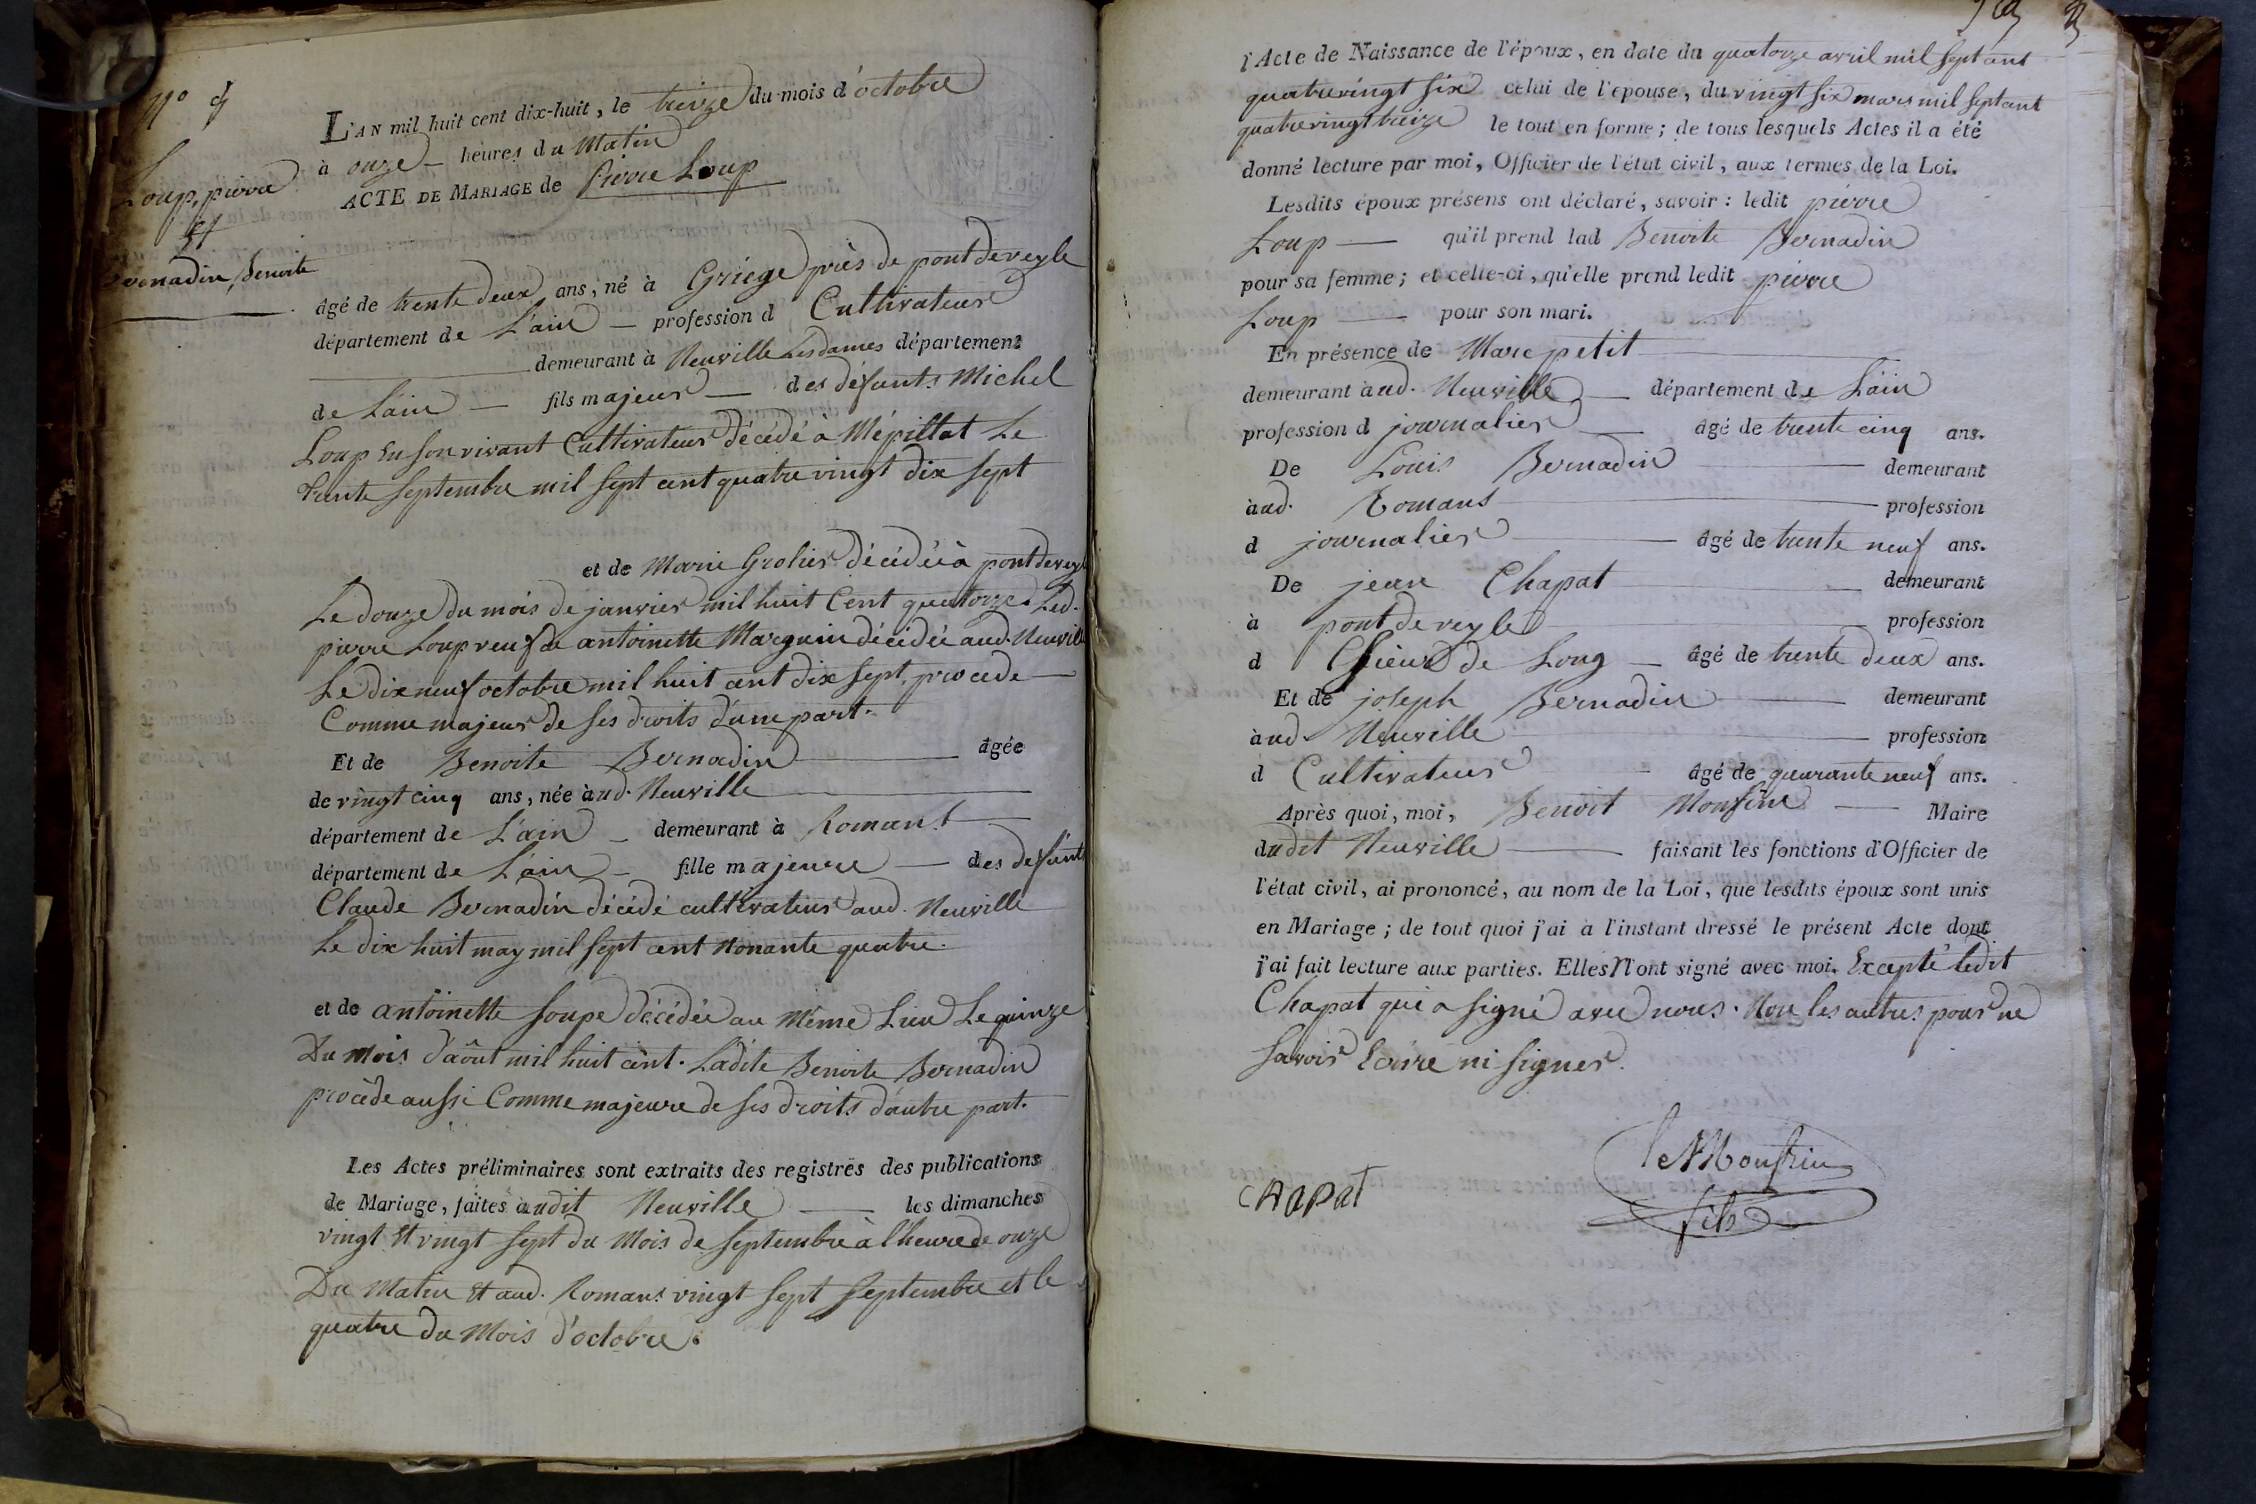 N.º 9
Loup, pierre
Et
Bernadin, Benoite
L'AN mil huit cent dix-huit, le treize du mois d'octobre
à onze — heures du Matin
ACTE DE MARIAGE de Pierre Loup
âgé de trente deux ans, né à Griège près de pontdeveyle
département de L'ain — profession d Cultivateur
demeurant à Neuville Les dames département
de L'ain — fils majeur — des défunts Michel
Loup En son vivant Cultivateur décédé à Mépillat Le
trente septembre mil sept cent quatre vingt dix sept
et de Marie Grolier décédée à pontdeveyle
Le douze du mois de janvier mil huit Cent quatorze. Led.
pierre Loup veuf de antoinette Marguin décédée aud. Neuville
Le dix neuf octobre mil huit cent dix sept, procede —
Comme majeur de ses droits d'une part.
Et de Benoite Bernadin — âgée
de vingt cinq ans, née à ud. Neuville —
département de L'ain — demeurant à Romans —
département de L'ain — fille majeure — des defunts
Claude Bernadin décédé cultivateur aud. Neuville
Le dix huit may mil sept cent nonante quatre.
et de antoinette Soupe décédée au Même Lieu Le quinze
Du Mois d'aôut mil huit cent. Ladite Benoite Bernadin
procède aussi Comme majeure de ses droits d'autre part.
Les Actes préliminaires sont extraits des registres des publications
de Mariage, faites àudit Neuville — les dimanches
vingt Et vingt sept du Mois de septembre à l'heure de onze
Du Matin Et aud. Romans vingt sept septembre et le
quatre du Mois d'octobre.
l'Acte de Naissance de l'époux, en date du quatorze avril mil sept cent
quatrevingt six celui de l'épouse, du vingt six mars mil sept cent
quatrevingt treize le tout en forme; de tous lesquels Actes il a été
donné lecture par moi, Officier de l'état civil, aux termes de la Loi.
Lesdits époux présens ont déclaré, savoir: ledit pierre
Loup — qu'il prend lad Benoite Bernadin
pour sa femme; et celle-ci, qu'elle prend ledit pierre
Loup — pour son mari.
En présence de Marc petit
demeurant à ud. Neuville — département de L'ain
profession d journalier — âgé de trente cinq ans.
De Louis Bernadin — demeurant
àud. Romans — profession
d journalier — âgé de trente neuf ans.
De jean Chapat — demeurant
à pontdeveyle — profession
d Sieur de Long — âgé de trente deux ans.
Et de joseph Bernadin — demeurant
àud. Neuville — profession
d Cultivateur — âgé de quarante neuf ans.
Après quoi, moi, Benoit Monfine — Maire
dudit Neuville — faisant les fonctions d'Officier de
l'état civil, ai prononcé, au nom de la Loi, que lesdits époux sont unis
en Mariage; de tout quoi j'ai à l'instant dressé le présent Acte dont
j'ai fait lecture aux parties. Elles N'ont signé avec moi. Excepté ledit
Chapat qui a signé avec nous. Non les autres pour ne
savoir Ecrire ni signer.
CHapat
fils